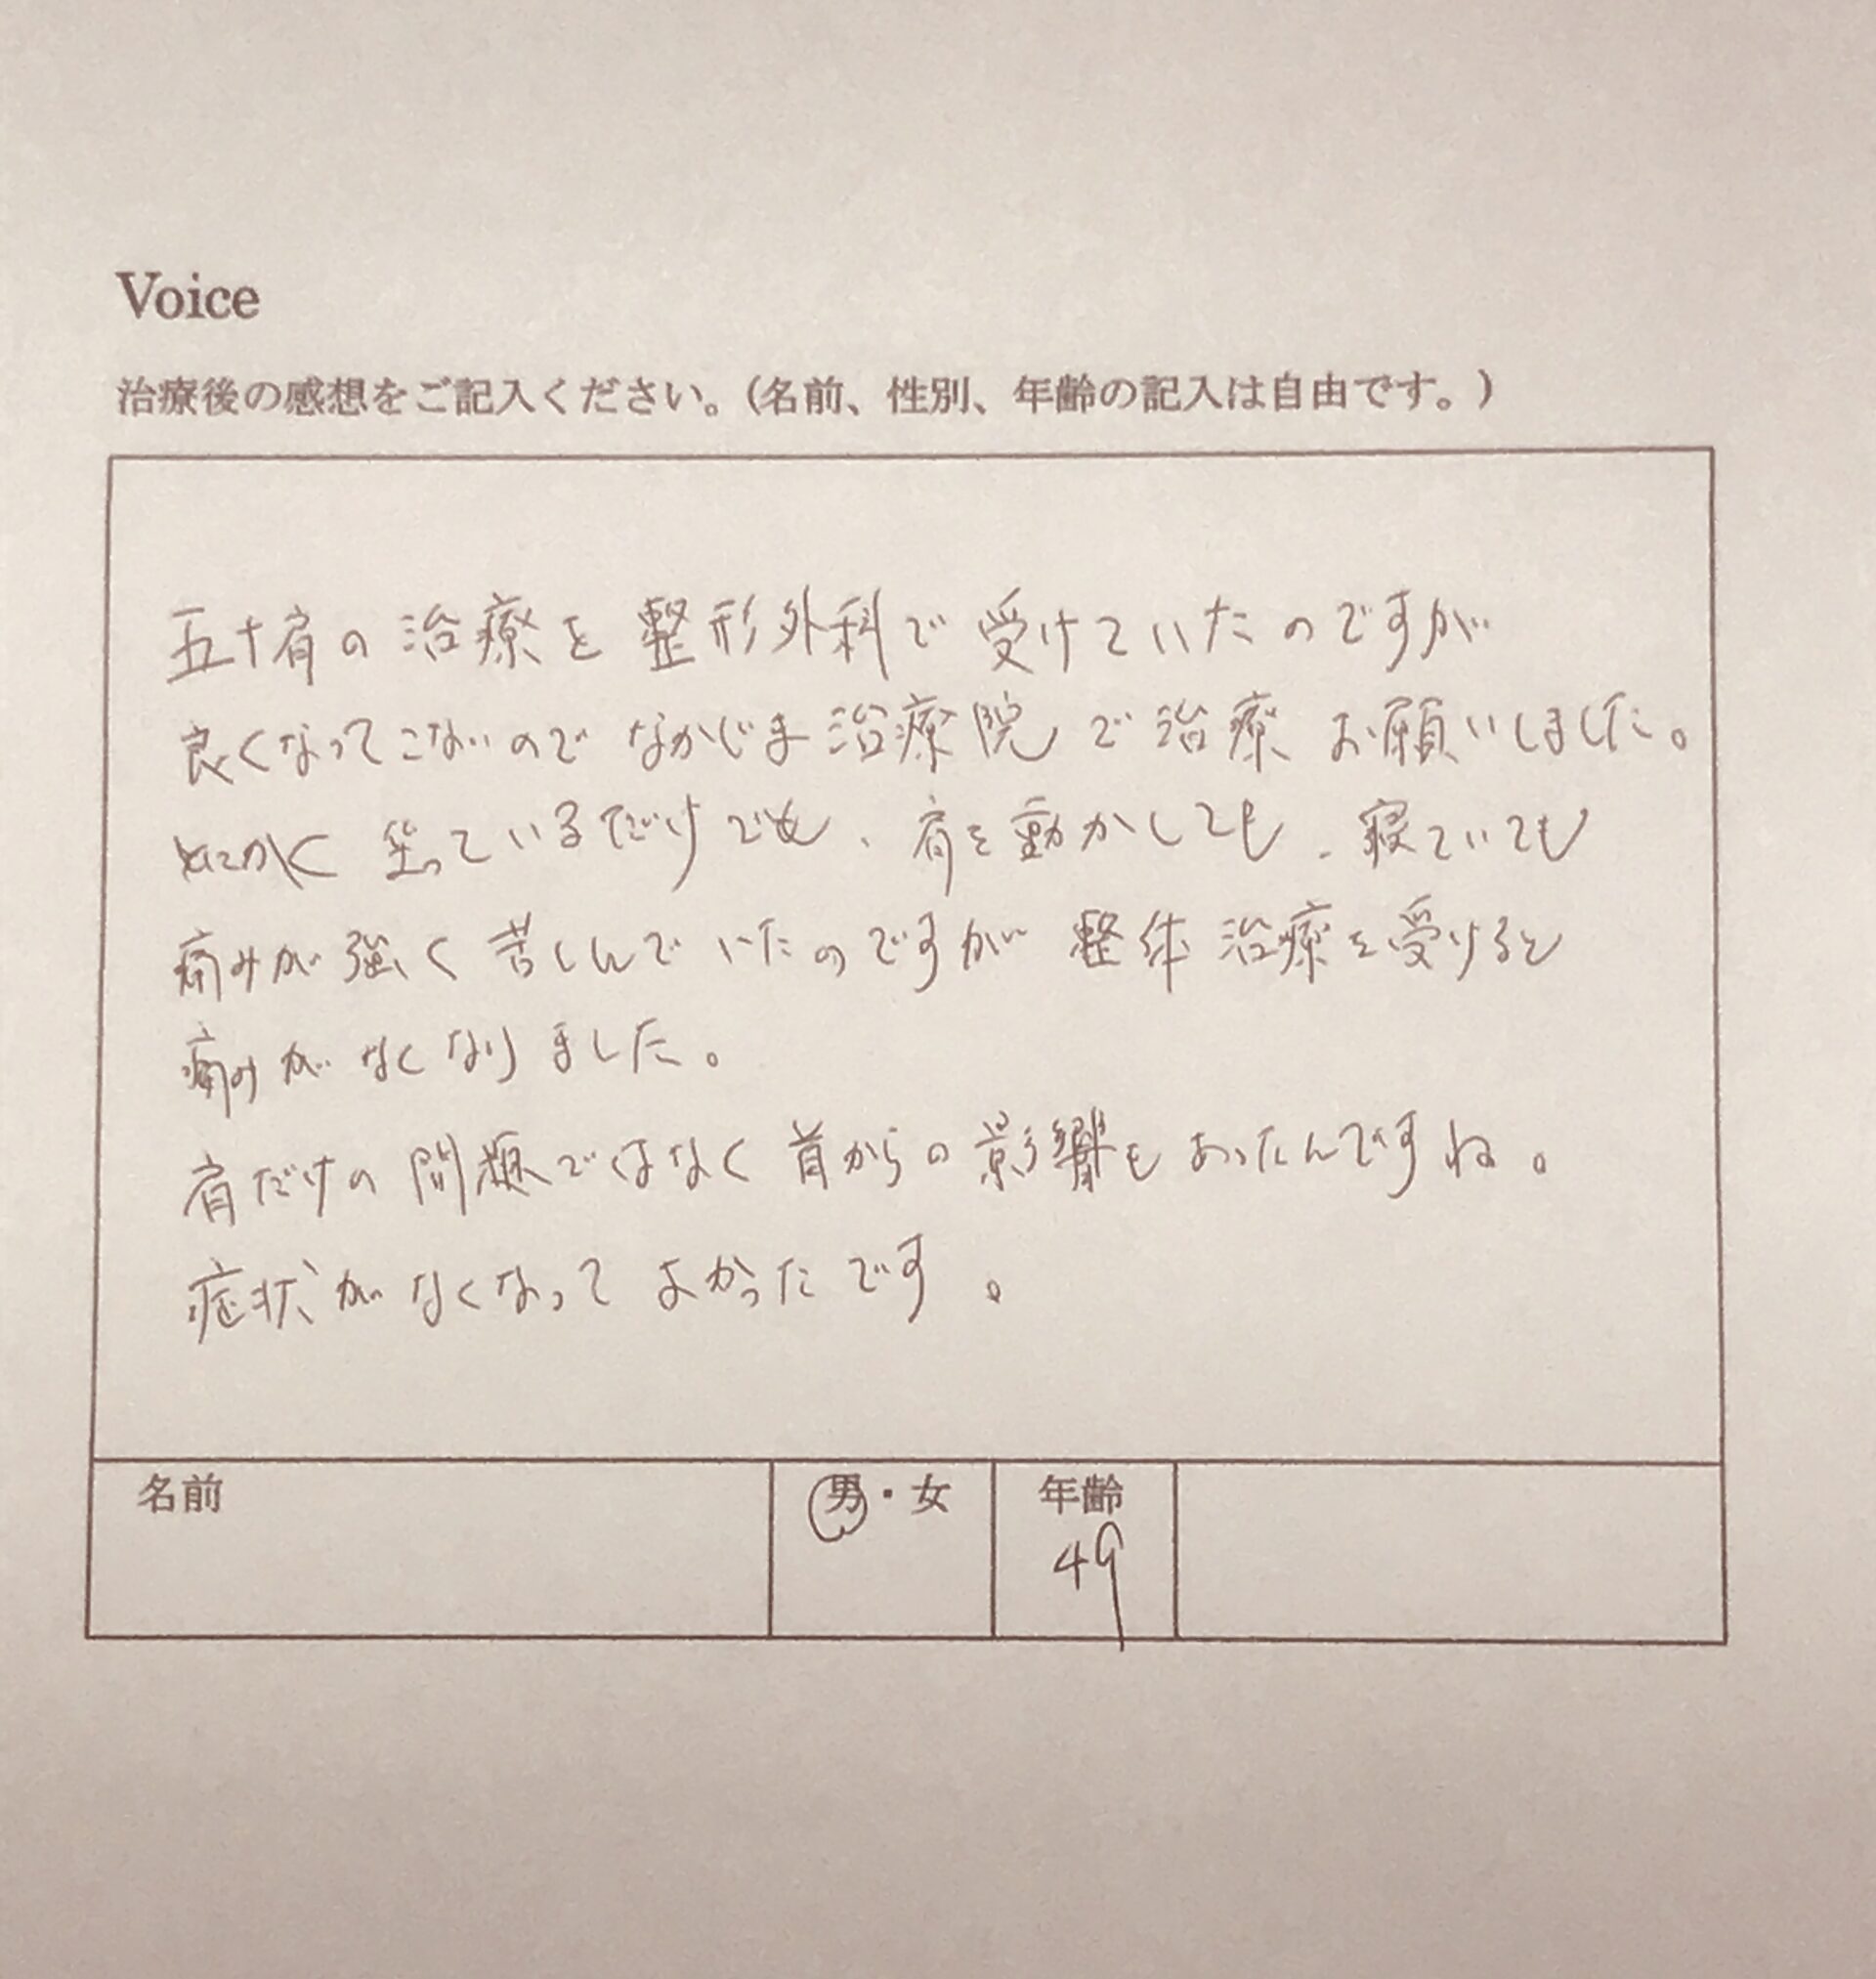 Voice
治療後の感想をご記入ください。(名前、性別、年齢の記入は自由です。)
五十肩の治療を整形外科で受けていたのですが
良くなってこないのでなかじま治療院で治療お願いしました。
とにかく坐っているだけでも、肩を動かしても、寝ていても
痛みが強く苦しんでいたのですが整体治療を受けると
痛みがなくなりました。
肩だけの問題ではなく首からの影響もあったんですね。
症状がなくなってよかったです。
名前 男・女 年齢
49